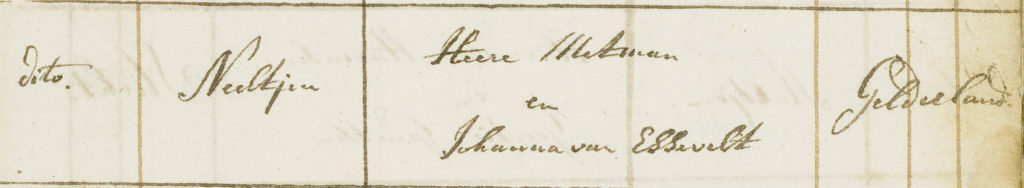 dito. Neeltjen Heere Metman Gelderland
en
Johanna van Essevelt